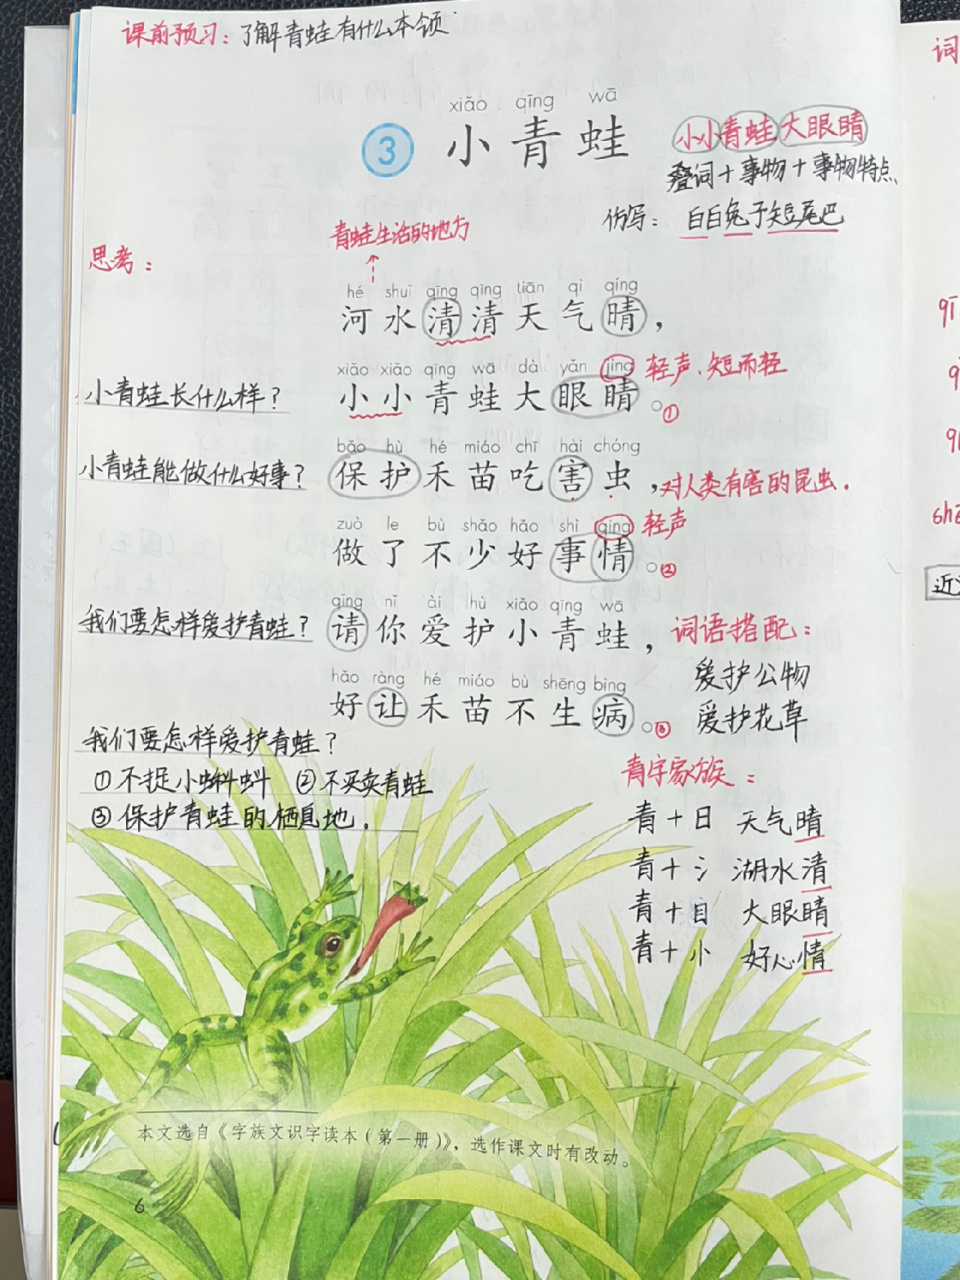 课前预习：了解青蛙有什么本领
xiǎo qīng wā
3 小青蛙
小小青蛙大眼睛
叠词＋事物＋事物特点
仿写：白白兔子短尾巴
青蛙生活的地方
思考：
hé shuǐ qīng qīng tiān qì qíng
河水清清天气晴，
xiǎo xiǎo qīng wā dà yǎn jing 轻声、短而轻
小青蛙长什么样？ 小小青蛙大眼睛。①
bǎo hù hé miáo chī hài chóng
小青蛙能做什么好事？ 保护禾苗吃害虫，对人类有害的昆虫.
zuò le bù shǎo hǎo shì qing 轻声
做了不少好事情。②
qǐng nǐ ài hù xiǎo qīng wā
我们要怎样爱护青蛙？ 请你爱护小青蛙，
词语搭配：
hǎo ràng hé miáo bù shēng bìng
爱护公物
好让禾苗不生病。③
爱护花草
我们要怎样爱护青蛙？
①不捉小蝌蚪 ②不买卖青蛙
③保护青蛙的栖息地.
青字家族：
青＋日 天气晴
青＋氵 湖水清
青＋目 大眼睛
青＋忄 好心情
本文选自《字族文识字读本（第一册）》，选作课文时有改动。
6
词